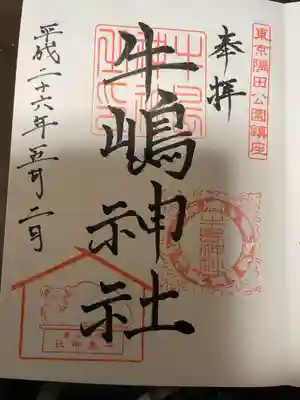 東京隅田公園鎮座
奉拝
牛嶋神社
平成二十六年五月二日